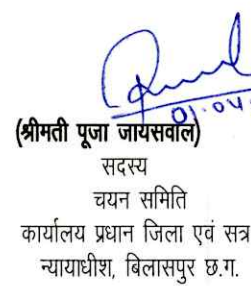 01.04.
(श्रीमती पूजा जायसवाल)
सदस्य
चयन समिति
कार्यालय प्रधान जिला एवं सत्र
न्यायाधीश, बिलासपुर छ.ग.